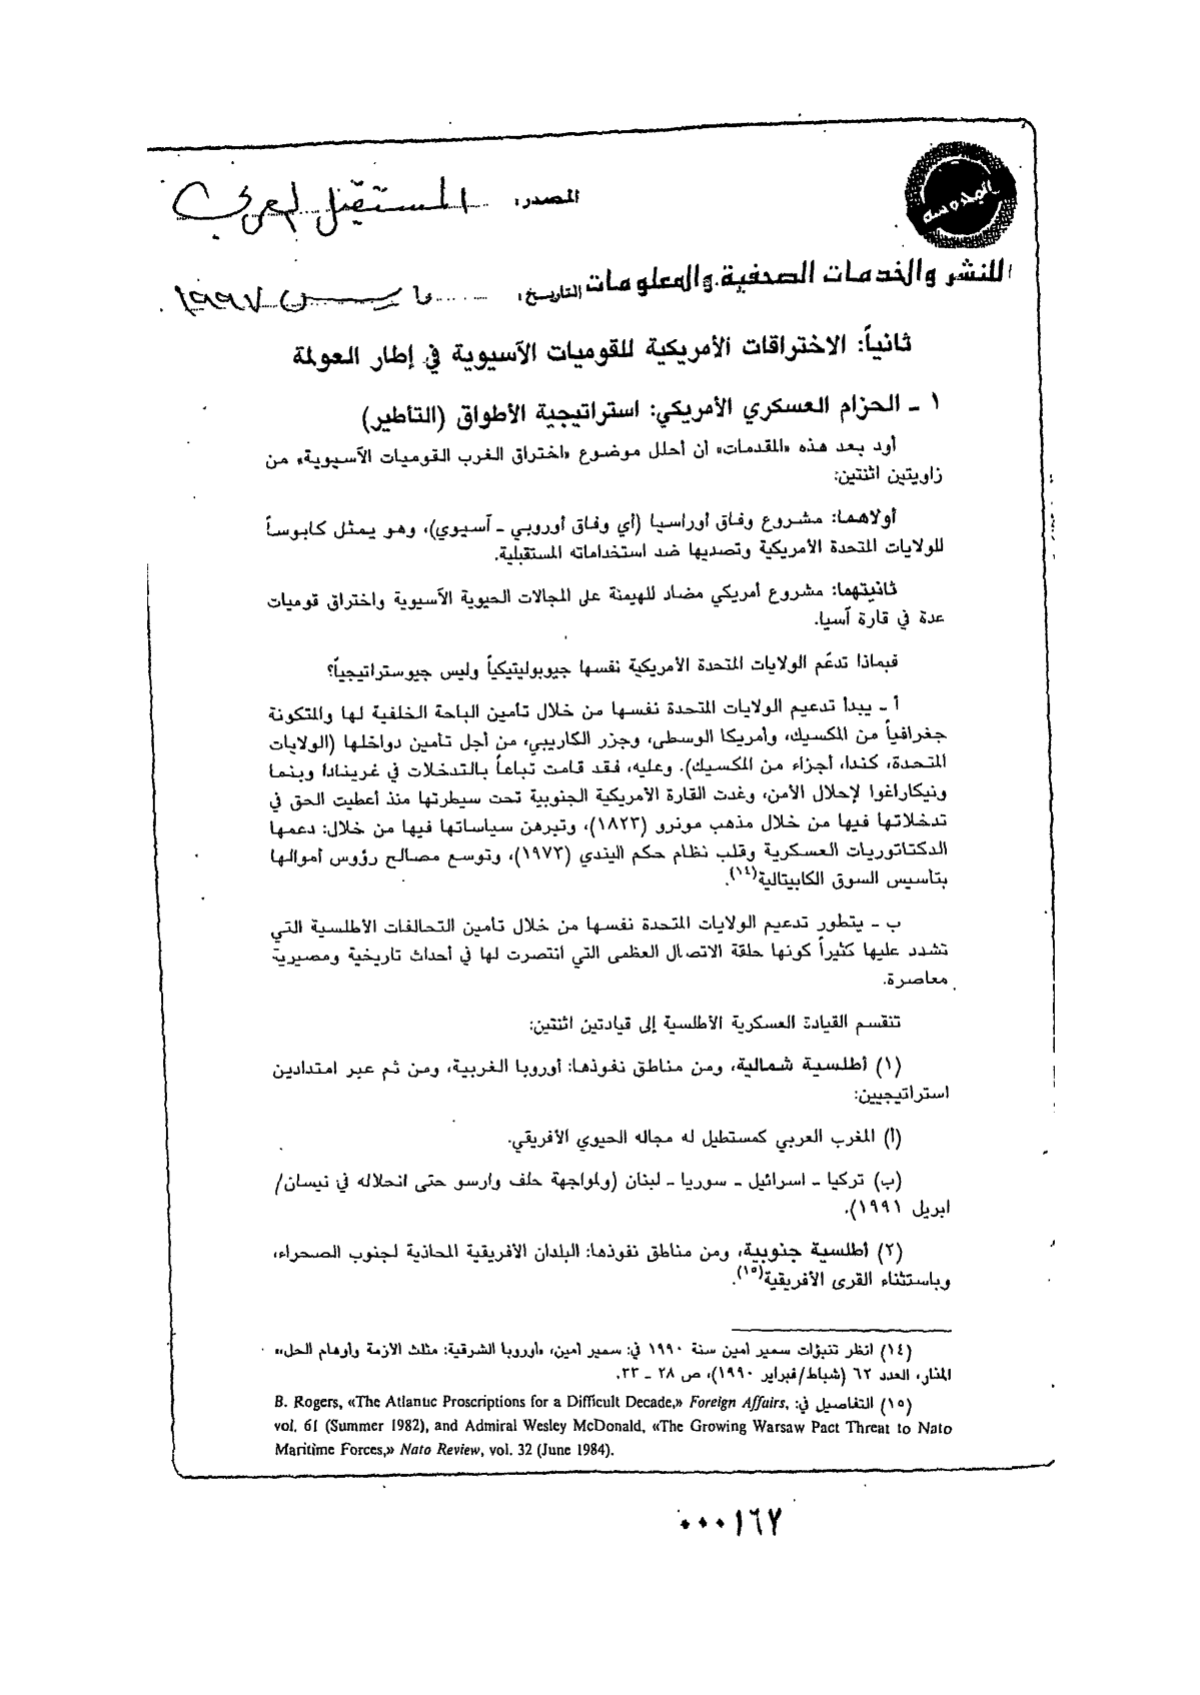 المصدر: المستقبل العربي
للنشر والخدمات الصحفية والمعلومات
التاريخ: مايس ١٩٩٧
ثانياً: الاختراقات الأمريكية للقوميات الآسيوية في إطار العولمة
١ ـ الحزام العسكري الأمريكي: استراتيجية الأطواق (التأطير)
أود بعد هذه «المقدمات» أن أحلل موضوع «اختراق الغرب القوميات الآسيوية» من
زاويتين اثنتين:
أولاهما: مشروع وفاق أوراسيا (أي وفاق أوروبي ـ آسيوي)، وهو يمثل كابوساً
للولايات المتحدة الأمريكية وتصديها ضد استخداماته المستقبلية.
ثانيتهما: مشروع أمريكي مضاد للهيمنة على المجالات الحيوية الآسيوية واختراق قوميات
عدة في قارة آسيا.
فبماذا تدعّم الولايات المتحدة الأمريكية نفسها جيوبوليتيكياً وليس جيوستراتيجياً؟
أ ـ يبدأ تدعيم الولايات المتحدة نفسها من خلال تأمين الباحة الخلفية لها والمتكونة
جغرافياً من المكسيك، وأمريكا الوسطى، وجزر الكاريبي، من أجل تأمين دواخلها (الولايات
المتحدة، كندا، أجزاء من المكسيك). وعليه، فقد قامت تباعاً بالتدخلات في غرينادا وبنما
ونيكاراغوا لإحلال الأمن، وغدت القارة الأمريكية الجنوبية تحت سيطرتها منذ أعطيت الحق في
تدخلاتها فيها من خلال مذهب مونرو (١٨٢٣)، وتبرهن سياساتها فيها من خلال: دعمها
الدكتاتوريات العسكرية وقلب نظام حكم اليندي (١٩٧٣)، وتوسع مصالح رؤوس أموالها
بتأسيس السوق الكابيتالية(١٤).
ب ـ يتطور تدعيم الولايات المتحدة نفسها من خلال تأمين التحالفات الأطلسية التي
تشدد عليها كثيراً كونها حلقة الاتصال العظمى التي انتصرت لها في أحداث تاريخية ومصيرية
معاصرة.
تنقسم القيادة العسكرية الأطلسية إلى قيادتين اثنتين:
(١) أطلسية شمالية، ومن مناطق نفوذها: أوروبا الغربية، ومن ثم عبر امتدادين
استراتيجيين:
(أ) المغرب العربي كمستطيل له مجاله الحيوي الأفريقي.
(ب) تركيا ـ اسرائيل ـ سوريا ـ لبنان (ولمواجهة حلف وارسو حتى انحلاله في نيسان/
ابريل ١٩٩١).
(٢) أطلسية جنوبية، ومن مناطق نفوذها: البلدان الأفريقية المحاذية لجنوب الصحراء،
وباستثناء القرى الأفريقية(١٥).
(١٤) انظر تنبؤات سمير امين سنة ١٩٩٠ في: سمير امين، «أوروبا الشرقية: مثلث الأزمة وأوهام الحل،»
المنار، العدد ٦٢ (شباط/فبراير ١٩٩٠)، ص ٢٨ ـ ٣٣.
(١٥) التفاصيل في: B. Rogers, «The Atlantic Proscriptions for a Difficult Decade,» Foreign Affairs,
vol. 61 (Summer 1982), and Admiral Wesley McDonald, «The Growing Warsaw Pact Threat to Nato
Maritime Forces,» Nato Review, vol. 32 (June 1984).
٠٠٠١٦٧